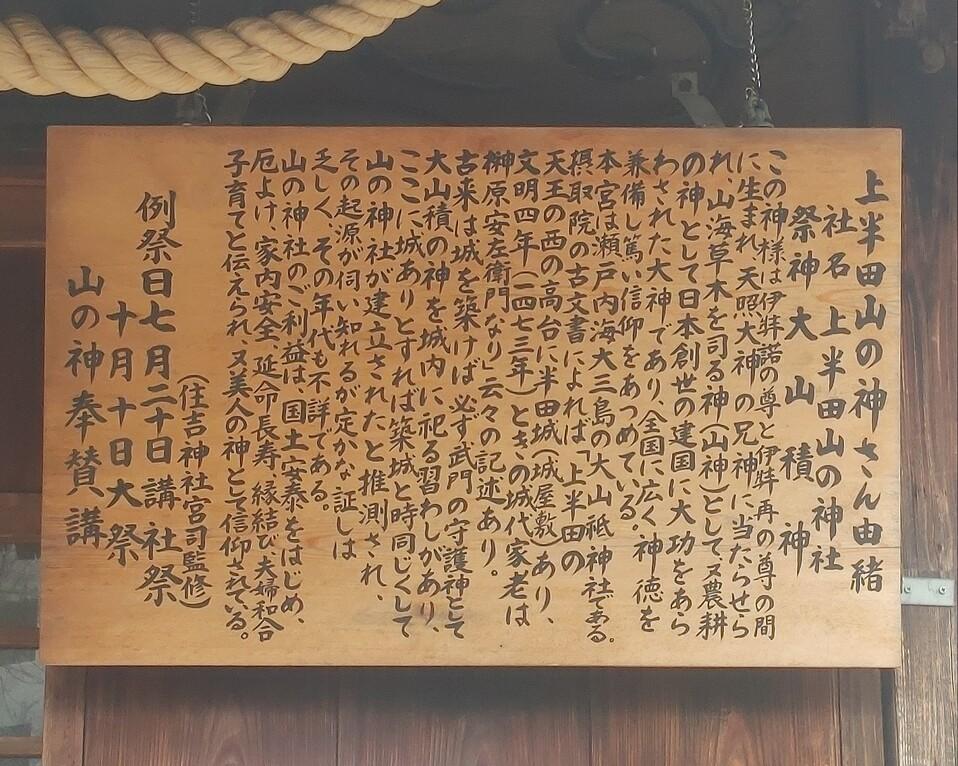 上半田山の神さん由緒
社名 上半田山の神社
祭神 大山積神
この神様は伊弉諾の尊と伊弉再の尊の間
に生まれ、天照大神の兄神に当たらせら
れ、山海草木を司る神(山神)として、又農耕
の神として日本創世の建国に大功をあら
わされた大神であり、全国に広く神徳を
兼備し篤い信仰をあつめている。
本宮は瀬戸内海大三島の大山祇神社である。
摂取院の古文書によれば「上半田の
天王の西の高台に半田城(城屋敷)あり、
文明四年(一四七三年)ときの城代家老は
榊原安左衛門なり」云々の記述あり。
古来は城を築けば必ず武門の守護神として
大山積の神を城内に祀る習わしがあり、
ここに城ありとすれば築城と時同じくして
山の神社が建立されたと推測され、
その起源が伺い知れるが定かな証しは
乏しく、その年代も不詳である。
山の神社のご利益は国土安泰をはじめ、
厄よけ、家内安全、延命長寿、縁結び、夫婦和合
子育てと伝えられ、又美人の神として信仰されている。
(住吉神社宮司監修)
例祭日七月二十日講社祭
十月十日大祭
山の神奉賛講